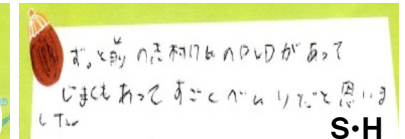 ずっと前の志村けんのDVDがあって
じまくもあってすごくべんりだと思いま
した
S・H